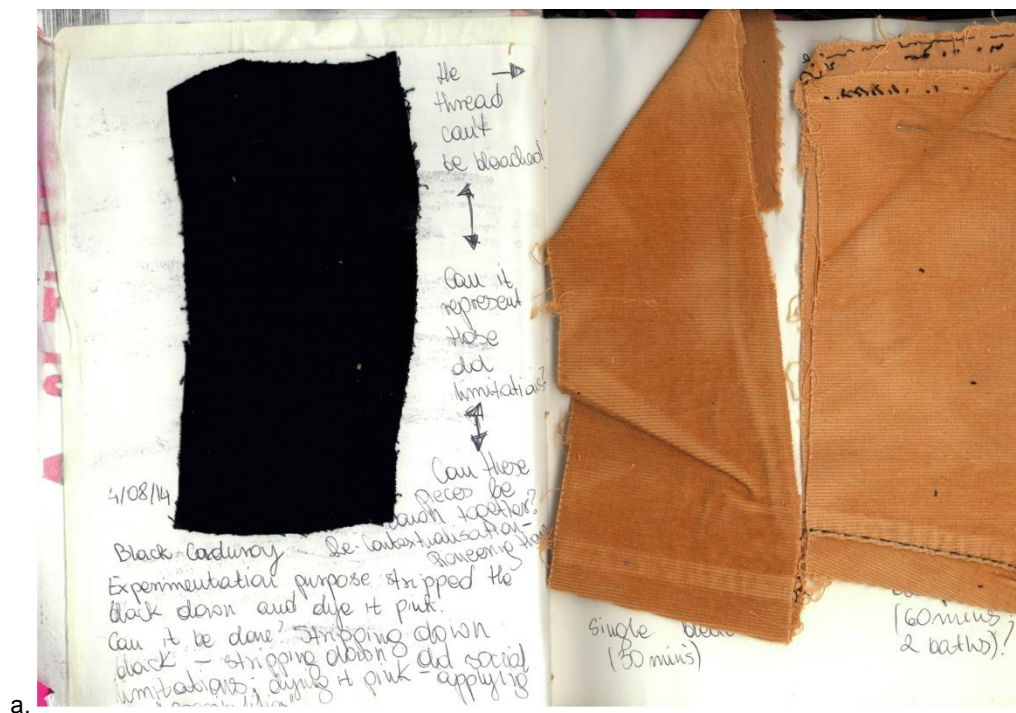 the
thread
can't
be bleached
Can it
represent
those
old
limitations?
Can these
pieces be
sewn together?
4/08/14
Black Corduroy Re-Contextualisation-
Experimentation purpose stripped the
black down and dye it pink.
Can it be done? Stripping down
black – stripping down old social
limitations; dying it pink – applying
single
(30 mins)
(60 mins,
2 baths)!
a.